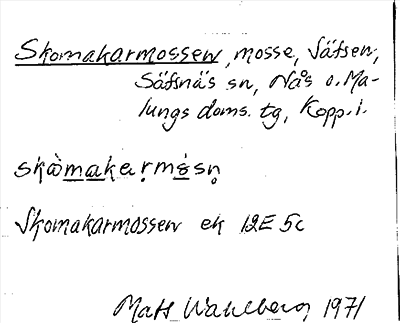 Skomakarmossen, mosse, Säfsen,
Säfsnäs sn, Nås o. Ma-
lungs doms. tg, Kopp. l.
skòmakarmósn
Skomakarmossen ek 12E 5c
Mats Wahlberg 1971